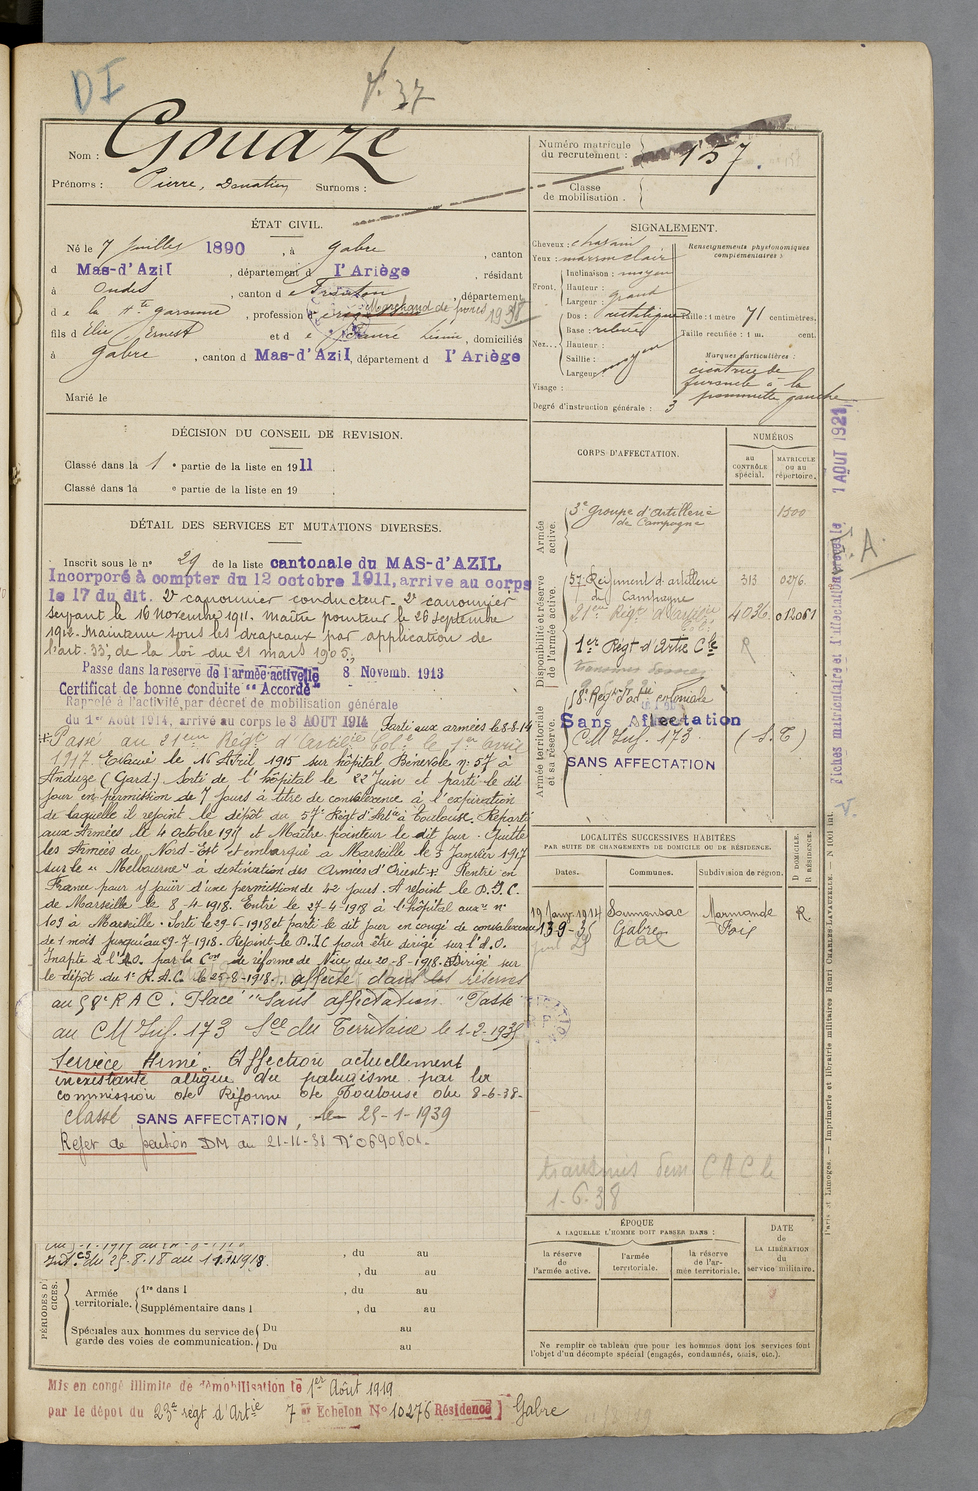 DI
37
Nom : Gouaze
Prénoms : Pierre, Donatien Surnoms :
Numéro matricule du recrutement : 157
Classe de mobilisation :
ÉTAT CIVIL.
Né le 7 juillet 1890, à Gabre, canton
d Mas-d'Azil, département d l'Ariège, résidant
à Ondes, canton d e Fronton, département
d e la Hte Garonne, profession d Marchand de porcs 1938
fils d Elie Ernest et d e Fauré, domiciliés
à Gabre, canton d Mas-d'Azil, département d l'Ariège
Marié le
SIGNALEMENT.
Cheveux : chatain
Yeux : marron clair
Front. Inclinaison : moyen
Hauteur :
Largeur : grand
Nez. Dos : rectiligne
Base : relevée
Hauteur :
Saillie : moyen
Largeur :
Visage :
Degré d'instruction générale : 3
Renseignements physionomiques complémentaires :
Taille : 1 mètre 71 centimètres.
Taille rectifiée : 1 m. cent.
Marques particulières :
cicatrice de
furoncle à la
pommette gauche
DÉCISION DU CONSEIL DE REVISION.
Classé dans la 1 e partie de la liste en 1911.
Classé dans la e partie de la liste en 19
DÉTAIL DES SERVICES ET MUTATIONS DIVERSES.
Inscrit sous le n° 29 de la liste cantonale du MAS-d'AZIL
Incorporé à compter du 12 octobre 1911, arrive au corps
le 17 du dit. 2e canonnier conducteur. 2e canonnier
servant le 16 Novembre 1911. Maître pointeur le 26 septembre
1912. Maintenu sous les drapeaux par application de
l'art. 33, de la loi du 21 mars 1905.
Passe dans la reserve de l'armée activelle 8 Novemb. 1913
Certificat de bonne conduite "Accordé"
Rappelé à l'activité par décret de mobilisation générale
du 1er Août 1914, arrivé au corps le 3 AOUT 1914 Parti aux armées le 8-8-14
Passé au 21eme Régt d'Artillie Colle le 1er avril
1917. Evacué le 16 Avril 1915 sur hôpital Bénévole n° 57 à
Anduze (Gard). Sorti de l'hôpital le 22 Juin et parti le dit
jour en permission de 7 jours à titre de convalescence à l'expiration
de laquelle il rejoint le dépôt du 57e Régt d'Artie à Toulouse. Reparti
aux Armées le 4 octobre 1915 et Maître pointeur le dit jour. Quitte
les Armées du Nord-Est et embarqué à Marseille le 3 Janvier 1917
sur le "Melbourne" à destination des Armées d'Orient + Rentré en
France pour y jouir d'une permission de 42 jours. A rejoint le D.I.C.
de Marseille le 8-4-1918. Entré le 27-4-1918 à l'hôpital auxre n°
103 à Marseille. Sorti le 29-6-1918 et parti le dit jour en congé de convalescence
de 1 mois jusqu'au 29-7-1918. Rejoint le D.I.C pour être dirigé sur l'A.O.
Inapte à l'A.O. par la Con de réforme de Nice du 20-8-1918. Dirigé sur
le dépôt du 1er R.A.C. le 25-8-1918. affecté dans les réserves
au 58e R A C. Placé "Sans affectation" Passé
au C M Inf. 173 Sce du Territoire le 1-2-1935
Service Armé. Affection actuellement
inexistante allègue du paludisme par la
commission de Réforme de Toulouse du 8-6-38.
Classé SANS AFFECTATION, le 25-1-1939
Rejet de pension DM du 21-11-31 N° 0690801.
Int. Cs du 25.8.18 au 11.11.1918.
, du au
, du au
PÉRIODES D'EXERCICES.
Armée territoriale. 1re dans l , du au
Supplémentaire dans l , du au
Spéciales aux hommes du service de garde des voies de communication. Du au
Du au
CORPS D'AFFECTATION.
NUMÉROS
au CONTRÔLE spécial.
MATRICULE ou au répertoire.
Armée active.
3e groupe d'artillerie de Campagne 1500
Disponibilité et réserve de l'armée active.
57e Régiment d'artillerie de Campagne 313 0276
21eme Régt d'artillerie Cole 4036 01206
1er Régt d'Artie Cle R
58e Régt d'artie coloniale
Armée territoriale et sa réserve.
Sans Affectation
CM Inf. 173 (S.T)
SANS AFFECTATION
LOCALITÉS SUCCESSIVES HABITÉES
PAR SUITE DE CHANGEMENTS DE DOMICILE OU DE RÉSIDENCE.
Dates. Communes. Subdivision de région. D DOMICILE. R RÉSIDENCE.
19 Janv. 1914 Soumensac Marmande R.
13-9-35 Gabre Foix
transmis dem CAC le
1-6-38
ÉPOQUE
A LAQUELLE L'HOMME DOIT PASSER DANS :
la réserve de l'armée active.
l'armée territoriale.
la réserve de l'armée territoriale.
DATE de LA LIBÉRATION du service militaire.
Ne remplir ce tableau que pour les hommes dont les services font l'objet d'un décompte spécial (engagés, condamnés, omis, etc.).
Mis en congé illimité de démobilisation le 1er Août 1919
par le dépôt du 23e régt d'Artie 7e Echelon N° 10276 Résidence Gabre
Fiches matriculaire et d'affectation 1 AOUT 1921
A.
V.
Paris et Limoges. — Imprimerie et librairie militaires Henri CHARLES-LAVAUZELLE.